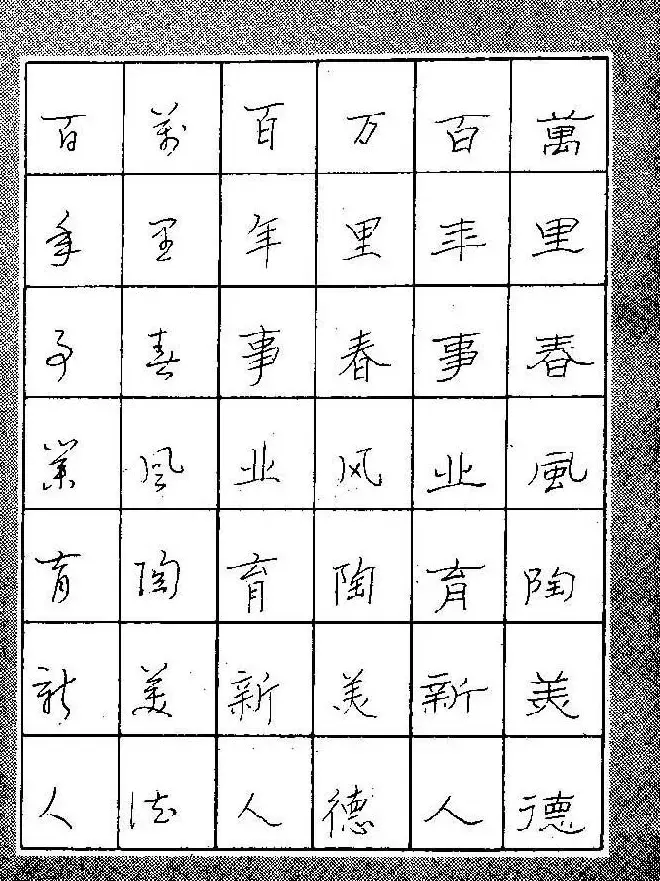 萬里春風陶美德
百年事业育新人
万里春风陶美德
百年事业育新人
萬里春風陶美德
百年事業育新人